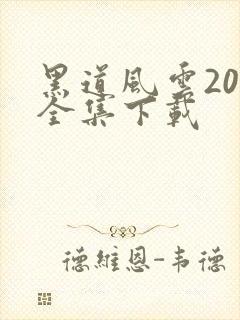 黑道風雲20
全集下載
德維恩-韦德